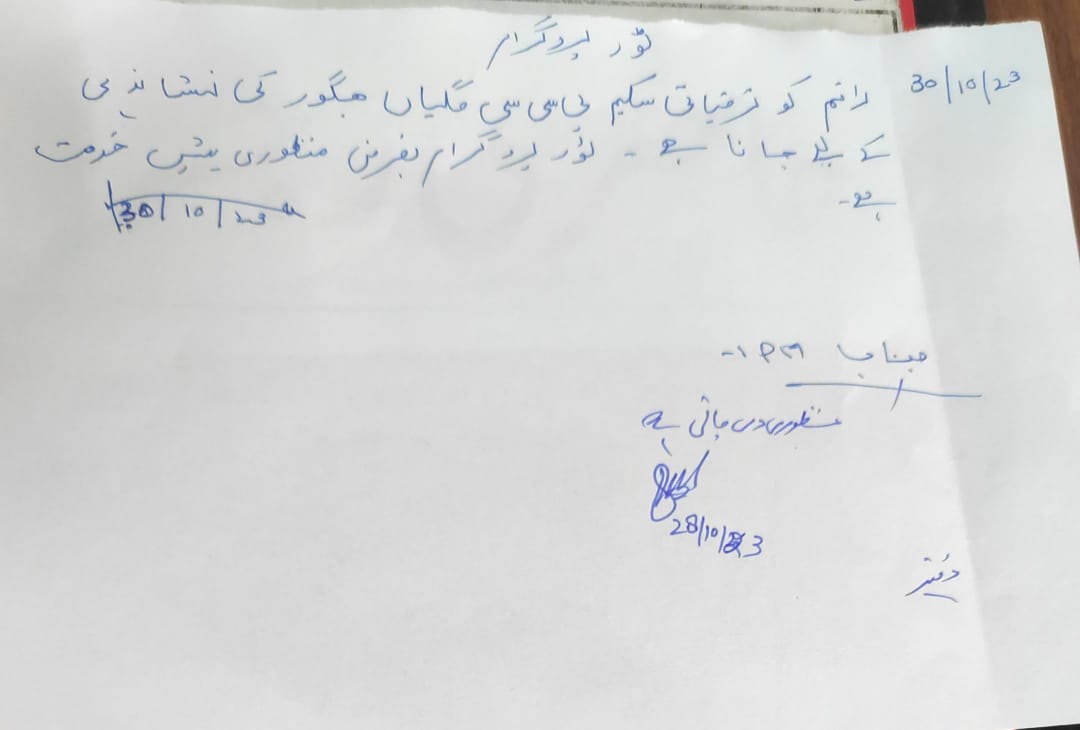 ٹور پروگرام
30/10/23 راقم کو ترقیاتی سکیم پی سی سی گلیاں ہگور کی نشاندہی
کے لیے جانا ہے ۔ ٹور پروگرام بغرض منظوری پیش خدمت
ہے۔
30/10/23
جناب
منظوری دی جاتی ہے
28/10/23
دفتر